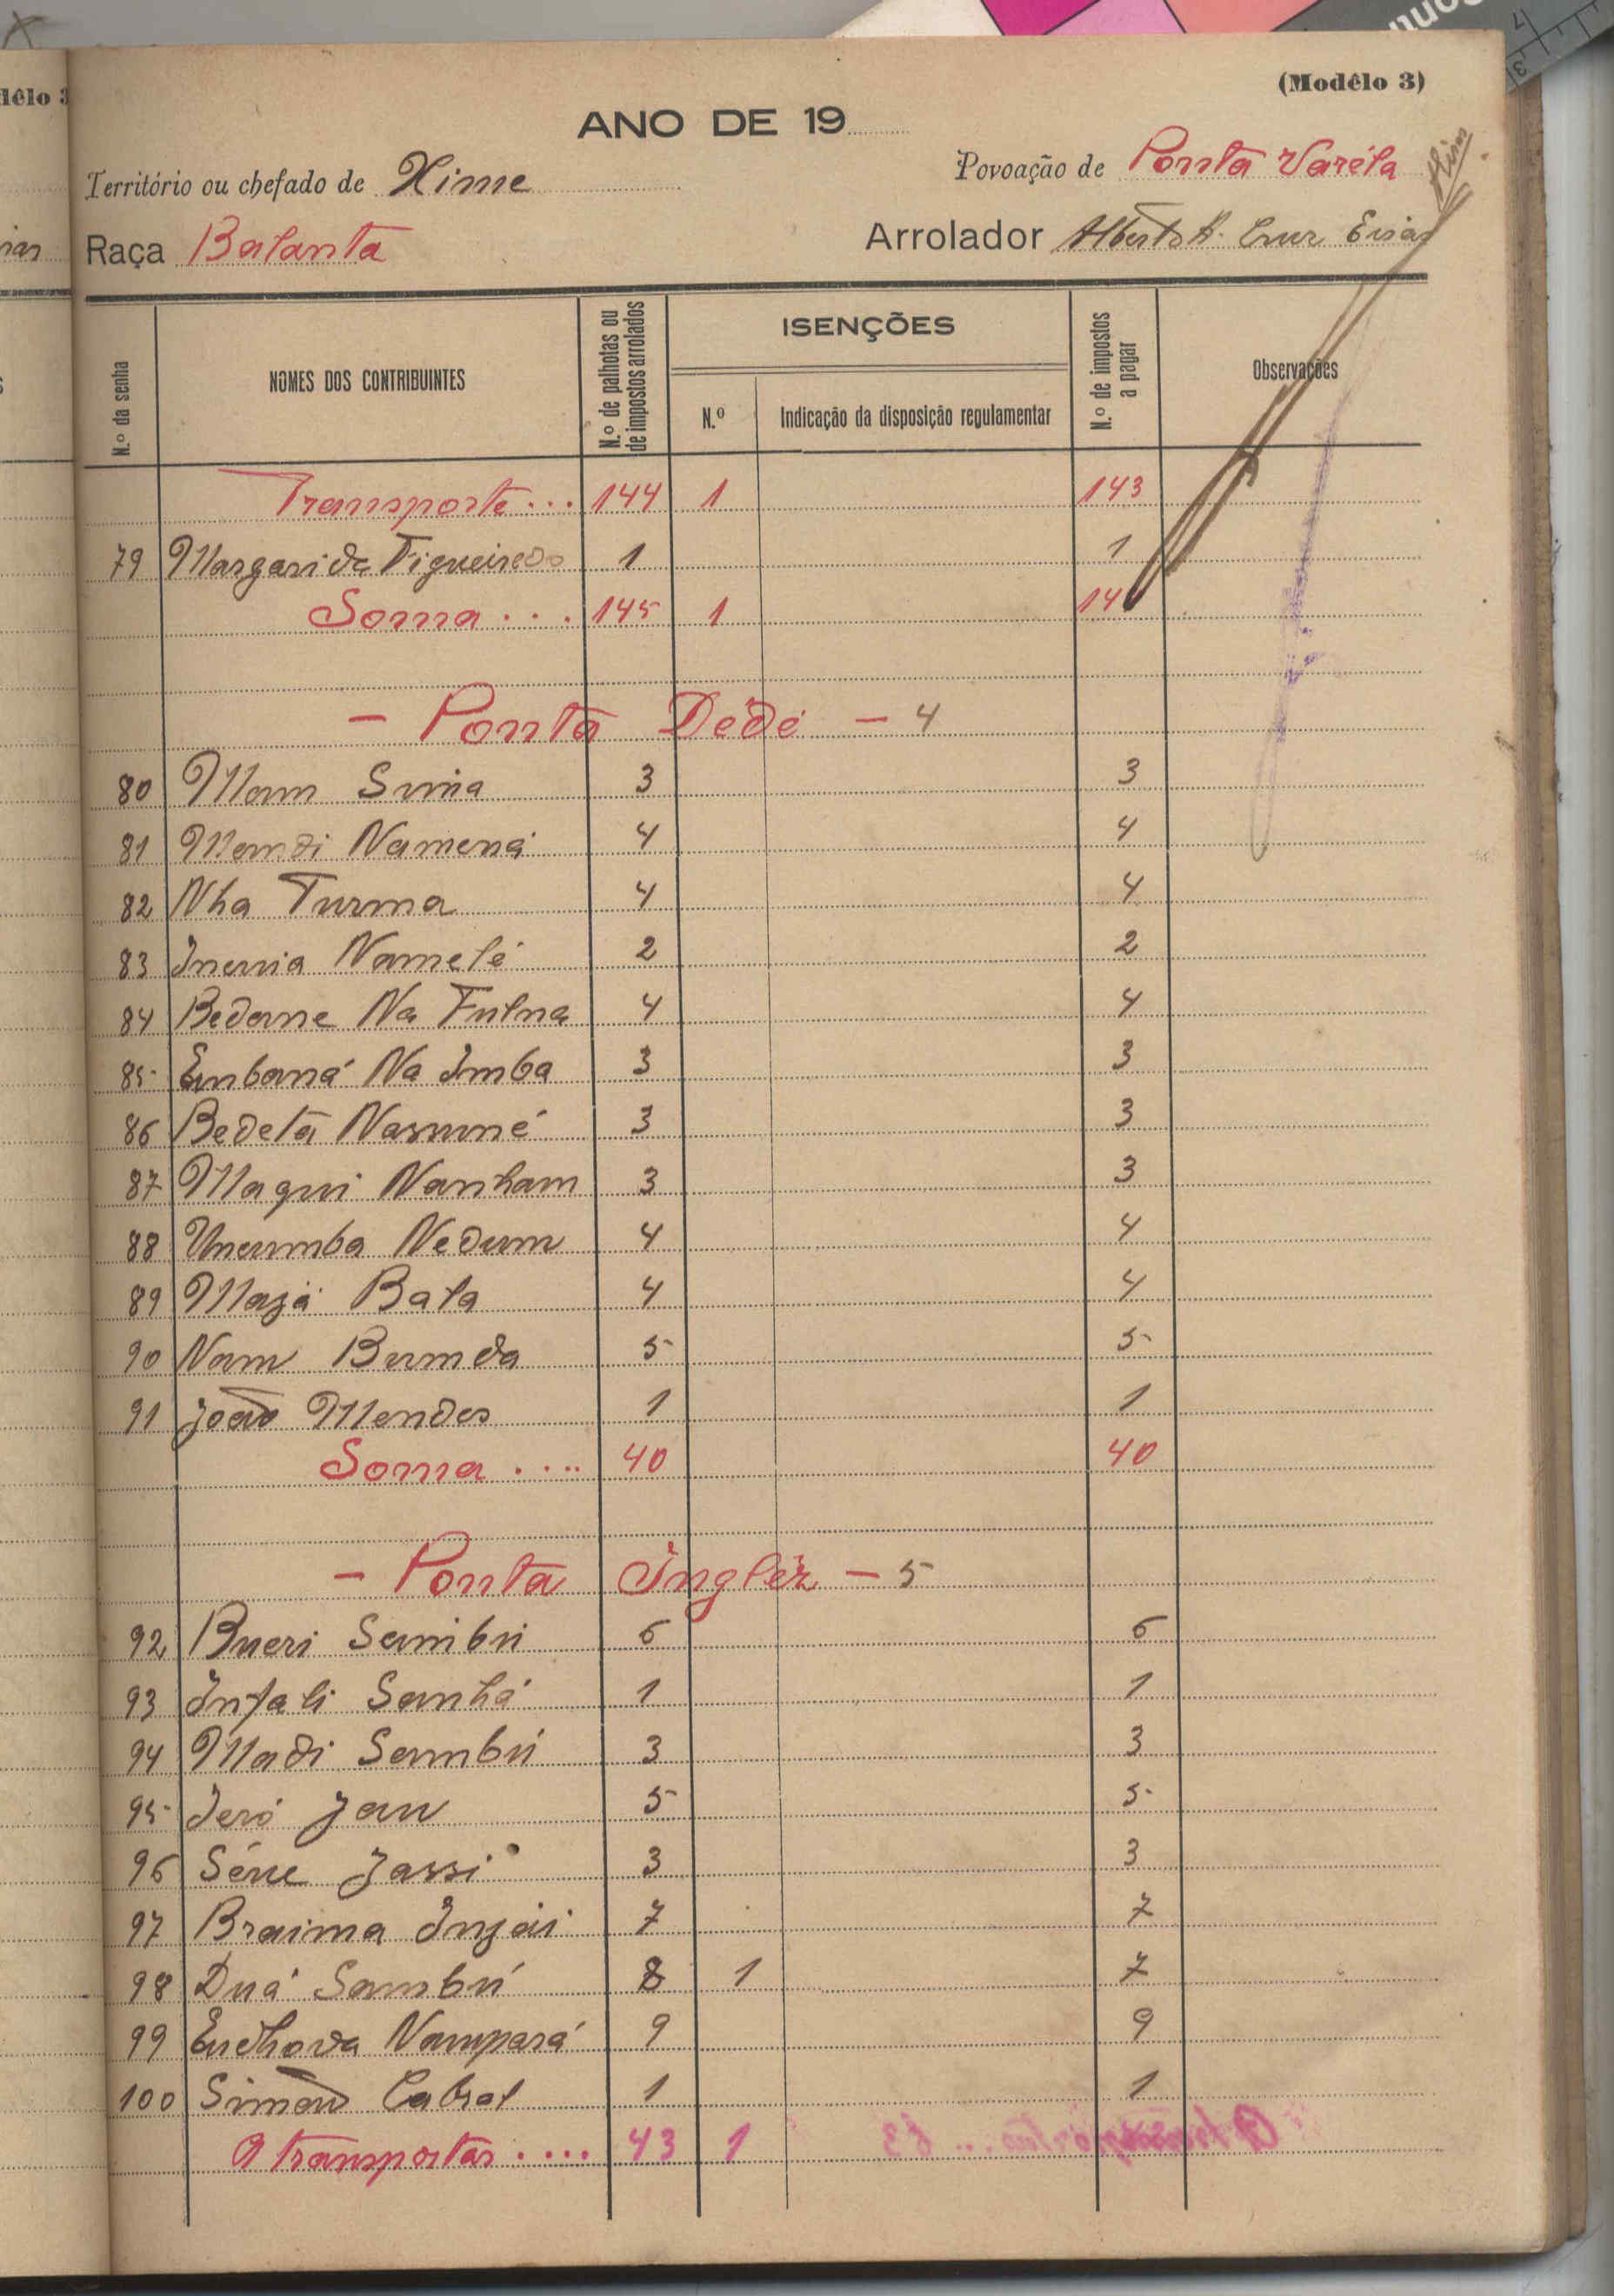 (Modêlo 3)
ANO DE 19
Território ou chefado de Xime
Povoação de Ponta Varéla
Raça Balanta
Arrolador Alberto A. Cruz
N.º da senha
NOMES DOS CONTRIBUINTES
N.º de palhotas ou de impostos arrolados
ISENÇÕES
N.º
Indicação da disposição regulamentar
N.º de impostos a pagar
Observações
Transporte... 144 1 143
79 Margarida Figueiredo 1 1
Soma... 145 1 14
- Ponta Dédé - 4
80 Mam Suna 3 3
81 Mandi Namená 4 4
82 Nha Turma 4 4
83 Inevia Namelé 2 2
84 Bedane Na Fulna 4 4
85 Enbaná Na Imba 3 3
86 Bedetá Nasumé 3 3
87 Maqui Nanham 3 3
88 Uncumba Nedum 4 4
89 Majá Bala 4 4
90 Nam Bumda 5 5
91 João Mendes 1 1
Soma.... 40 40
- Ponta Inglêz - 5
92 Bueri Sambú 6 6
93 Infali Sanhá 1 1
94 Madi Sambú 3 3
95 Jeró Jau 5 5
96 Séne Jassi 3 3
97 Braima Injái 7 7
98 Duá Sambú 8 1 7
99 Nampará 9 9
100 Simão Cabral 1 1
A transportar.... 43 1